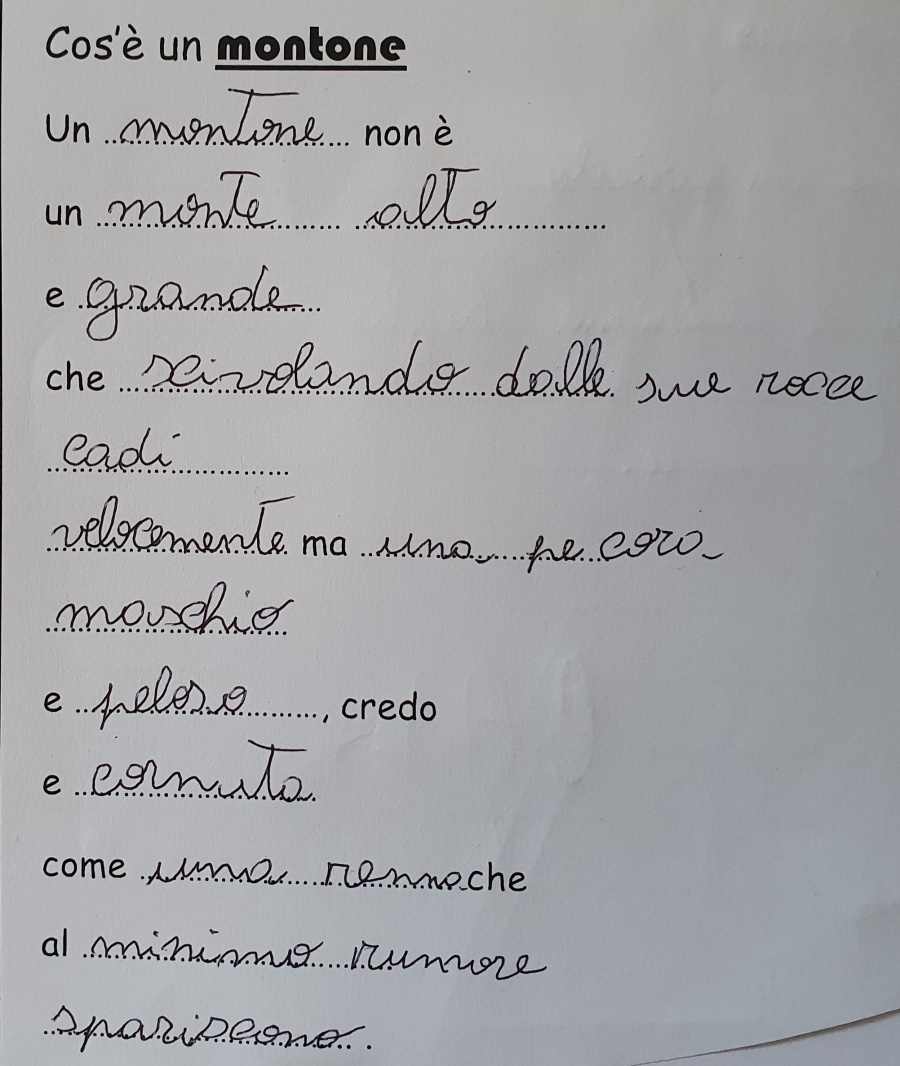 Cos'è un montone
Un montone non è
un monte alto
e grande
che scivolando dalle sue rocce
cadi
velocemente ma una pecora
maschio
e peloso, credo
e cornuta
come una renna che
al minimo rumore
spariscono.